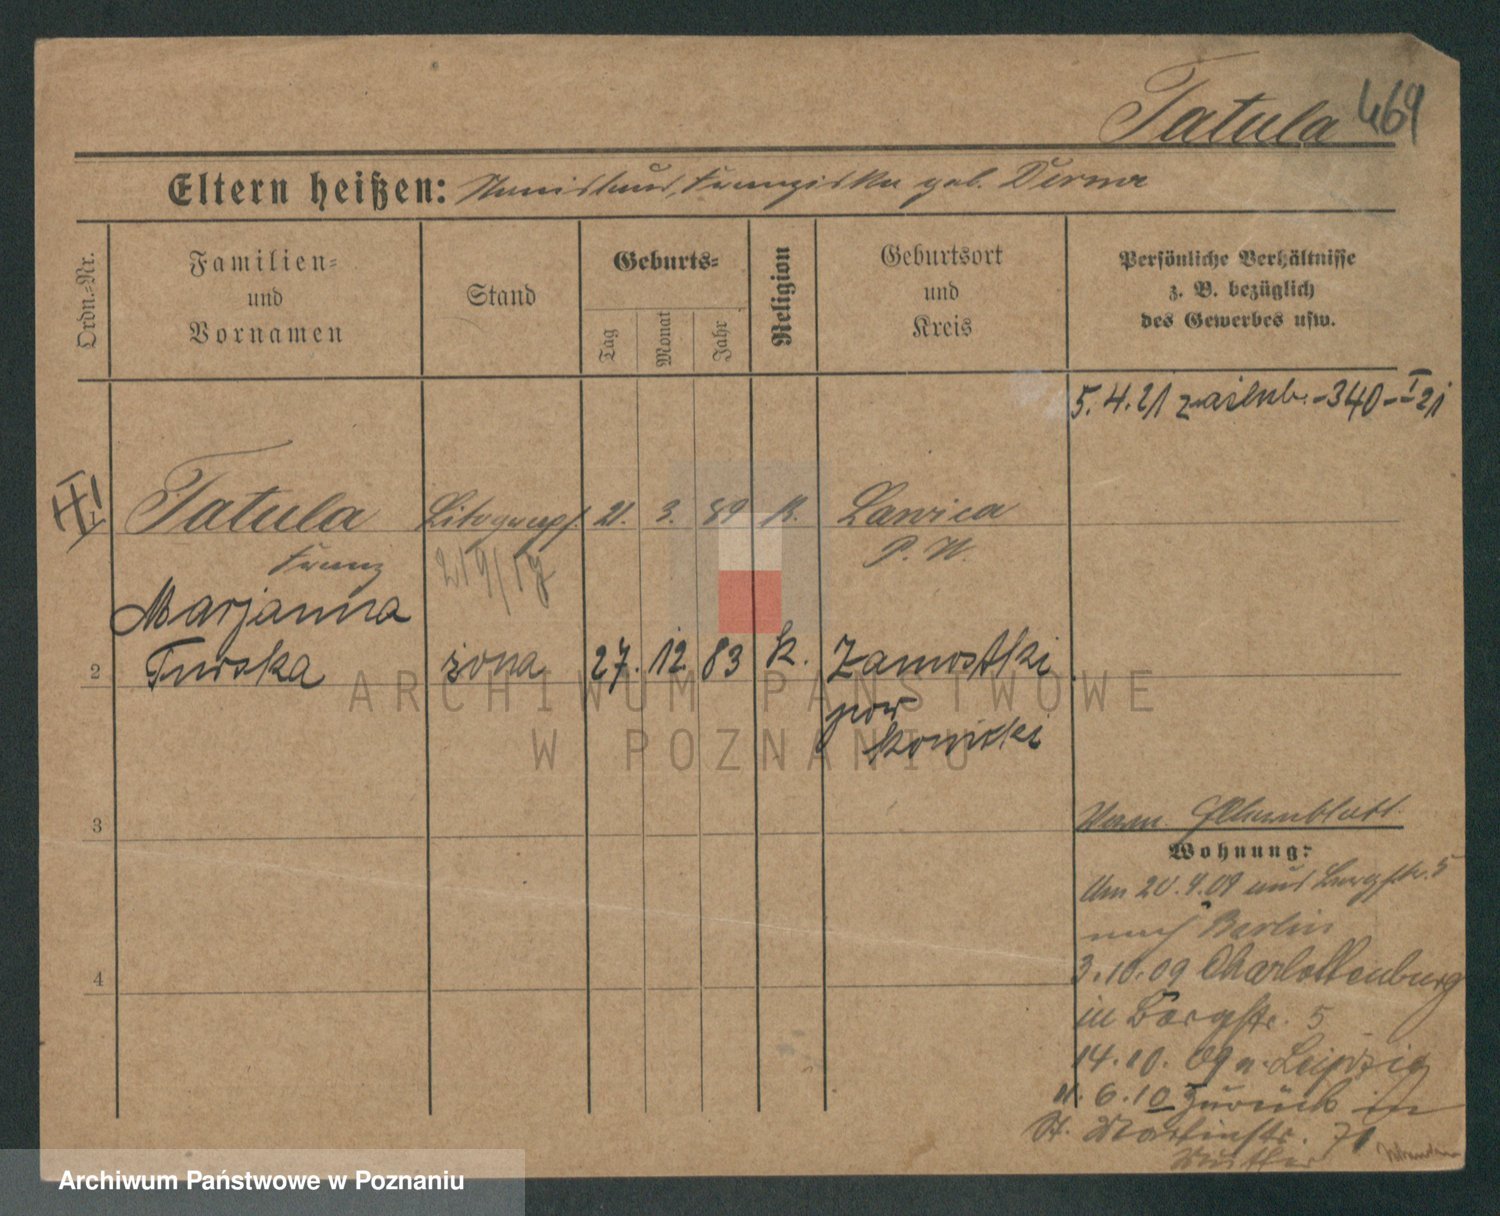 Tatula 469
Eltern heißen: Stanislaus, Franziska geb. Derma
Ordn.-Nr.
Familien-
und
Vornamen
Stand
Geburts-
Tag
Monat
Jahr
Religion
Geburtsort
und
Kreis
Persönliche Verhältnisse
z. B. bezüglich
des Gewerbes usw.
5.4.21 zaślub. -340-I 21
Tatula Lithograph. 21. 3. 89 K. Lawica
Franz P. W.
219/19
Marjanna
2 Turska żona 27. 12 83 k. Zamostki
pow
3
Wohnung:
Am 20.4.09 aus Bergstr. 5
nach Berlin
3.10.09 Charlottenburg
in Bergstr. 5
4
14.10.09 n. Leipzig
6.10 zurück in
St. Martinstr. 71
Mutter
ARCHIWUM PAŃSTWOWE
W POZNANIU
Archiwum Państwowe w Poznaniu